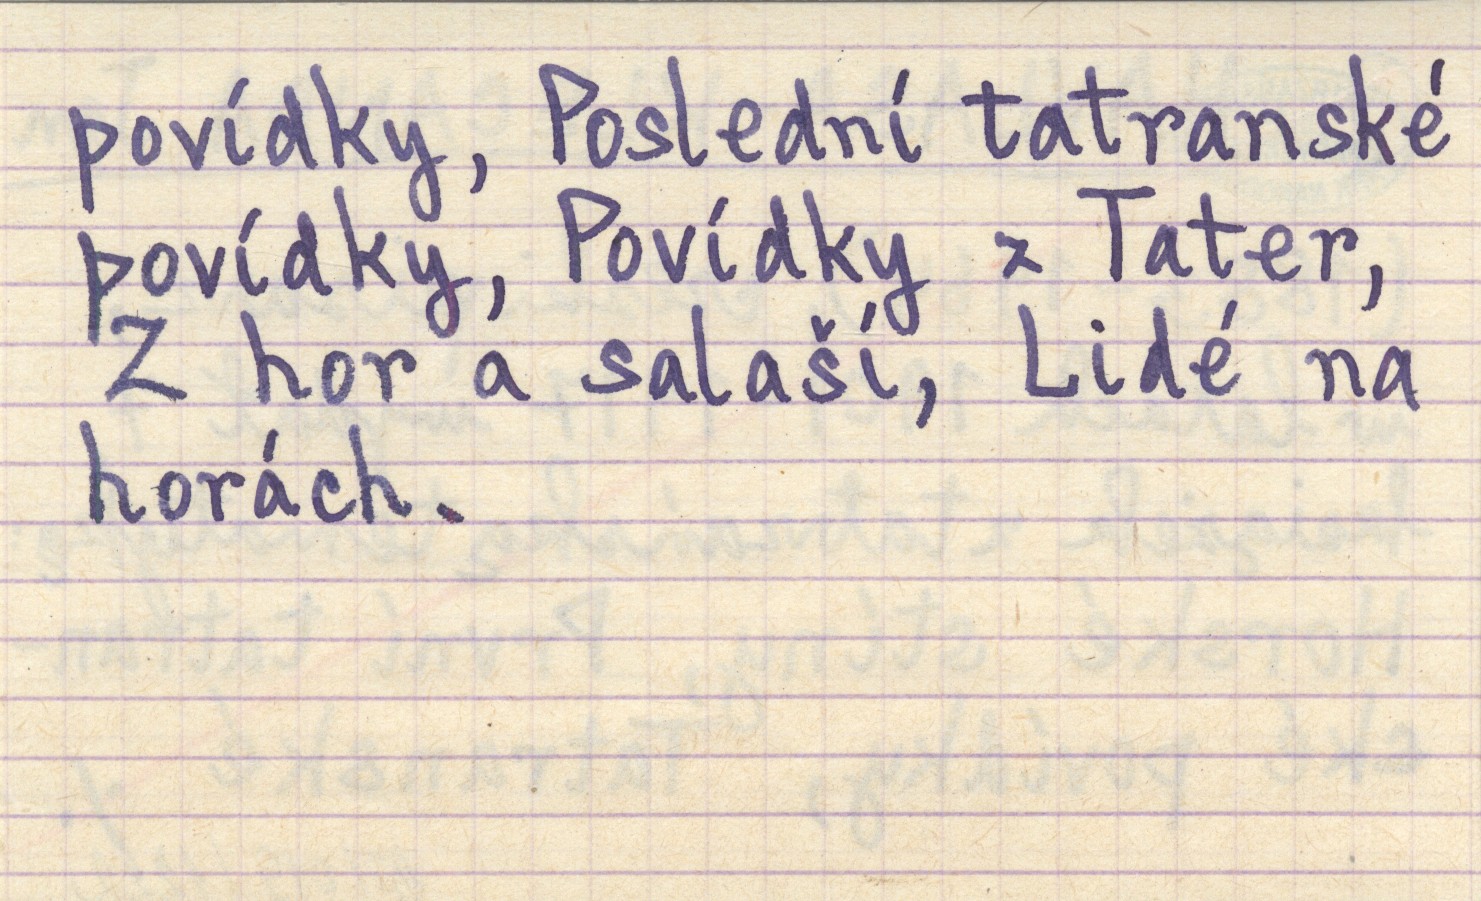 povídky, Poslední tatranské
povídky, Povídky z Tater,
Z hor a salaší, Lidé na
horách.